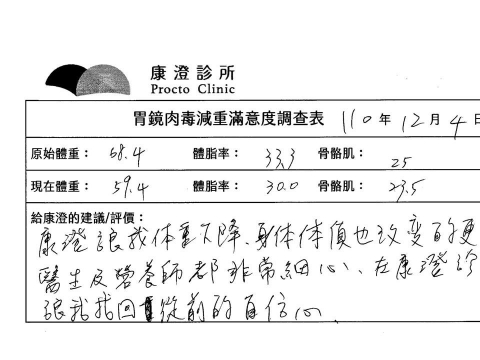 康澄診所
Procto Clinic
胃鏡肉毒減重滿意度調查表 110 年 12 月 4 日
原始體重： 68.4 體脂率： 33.3 骨骼肌： 25
現在體重： 59.4 體脂率： 30.0 骨骼肌： 23.5
給康澄的建議/評價：
康澄讓我体重下降、身体体質也改变的更
醫生及營養師都非常細心、在康澄診
讓我找回從前的自信心